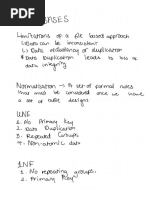 BASES
Limitations of a file based approach
Data can be inconsistent
Data redundancy or duplication
Data Duplication leads to loss of
data integrity
Normalisation → A set of formal rules
that must be considered once we have
a set of table designs
UNF
1. No Primary Key
2. Data Duplication
3. Repeated Groups
4. Non-atomic data
1NF
1. No repeating groups.
2. Primary Key